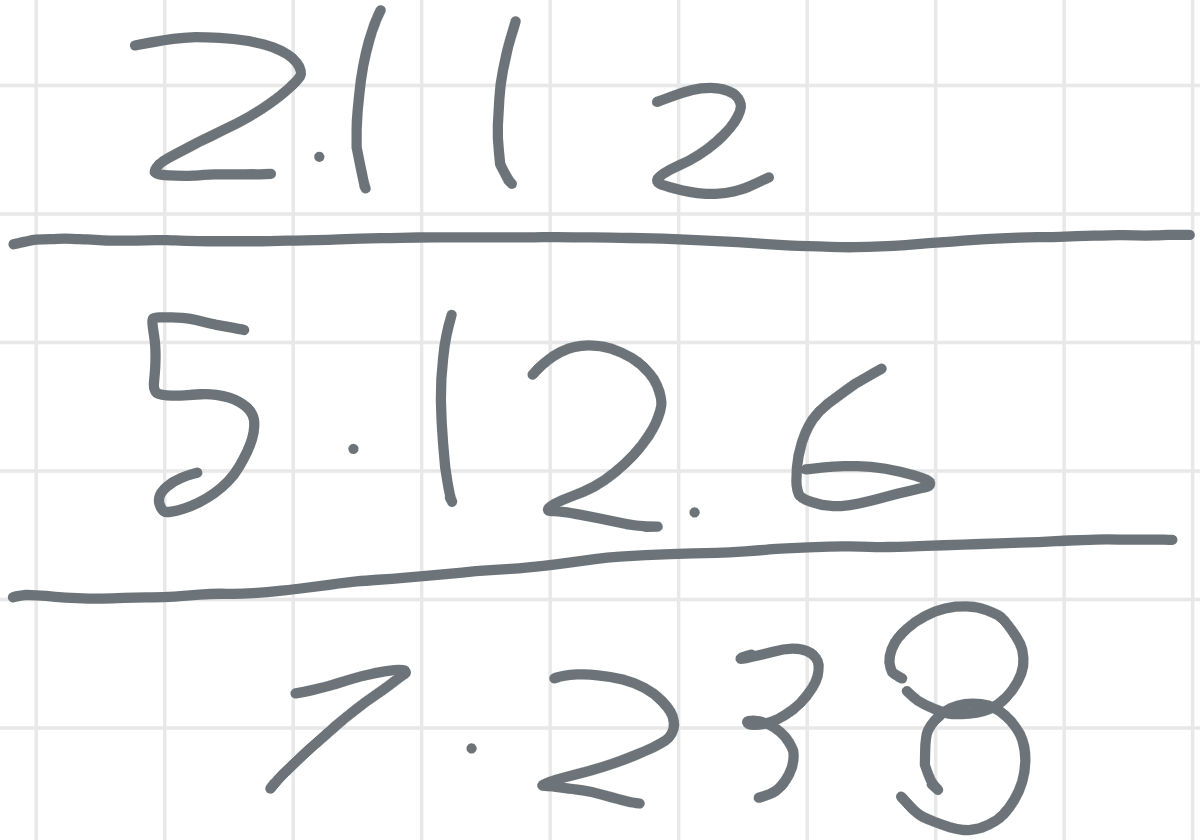 2.112
5.12.6
7.238